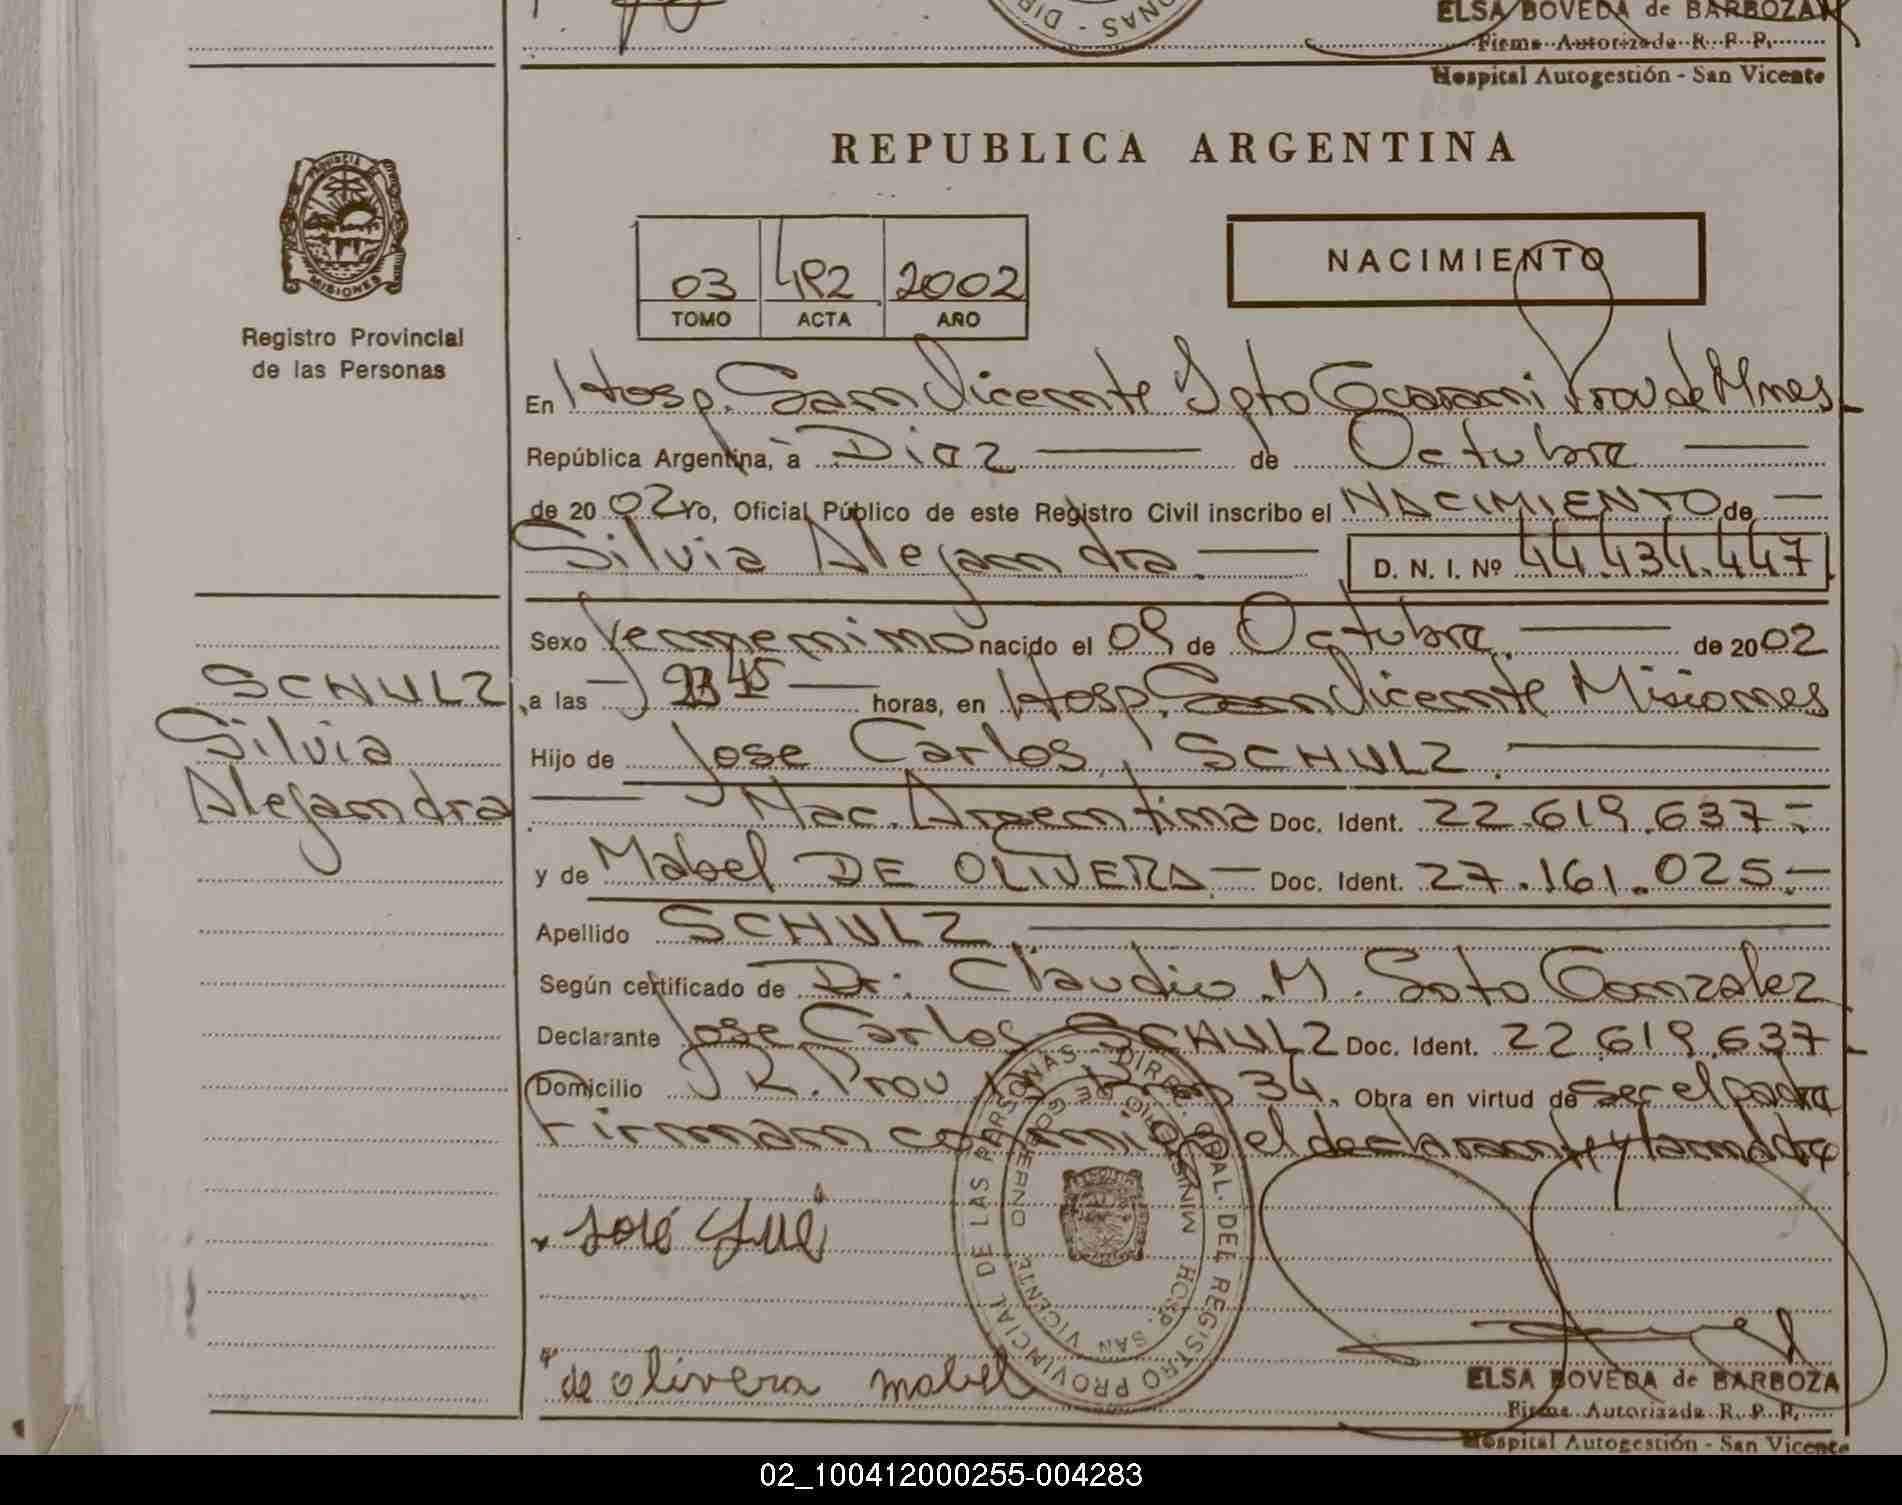 ELSA BOVEDA de BARBOZA
Firma Autorizada R. P. P.
Hospital Autogestión - San Vicente
REPUBLICA ARGENTINA
PROVINCIA DE
MISIONES
Registro Provincial
de las Personas
03 492 2002
TOMO ACTA AÑO
NACIMIENTO
En Hosp. San Vicente Dpto Guarani Prov de Mnes
República Argentina, a Diez de Octubre
de 20 02 Yo, Oficial Público de este Registro Civil inscribo el NACIMIENTO de
Silvia Alejandra D. N. I. Nº 44.434.447
Sexo femenino nacido el 09 de Octubre de 20 02
a las 45 horas, en Hosp. San Vicente Misiones
SCHULZ
Silvia
Alejandra
Hijo de Jose Carlos SCHULZ
Nac. Argentina Doc. Ident. 22.619.637
y de Mabel DE OLIVERA Doc. Ident. 27.161.025
Apellido SCHULZ
Según certificado de Dr. Claudio M. Soto Gonzalez
Declarante Jose Carlos SCHULZ Doc. Ident. 22.619.637
Domicilio R. Prov 34. Obra en virtud de ser el padre
Firman conmigo el declarante y la madre
José
de olivera mabel
DIREC. GRAL. DEL REGISTRO PROVINCIAL DE LAS PERSONAS
MINISTERIO DE GOBIERNO
HOSP. SAN VICENTE
ELSA BOVEDA de BARBOZA
Firma Autorizada R. P. P.
Hospital Autogestión - San Vicente
02_100412000255-004283